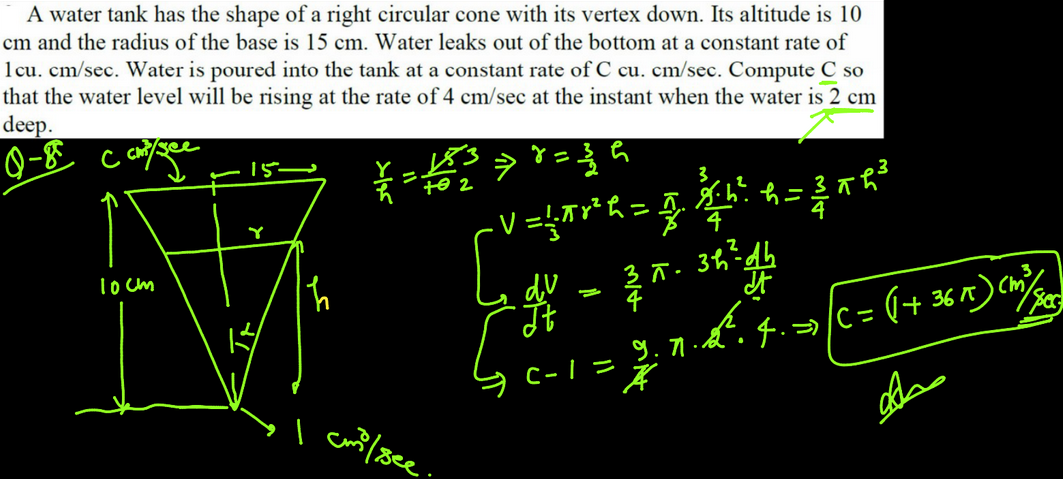 A water tank has the shape of a right circular cone with its vertex down. Its altitude is 10
cm and the radius of the base is 15 cm. Water leaks out of the bottom at a constant rate of
1cu. cm/sec. Water is poured into the tank at a constant rate of C cu. cm/sec. Compute C so
that the water level will be rising at the rate of 4 cm/sec at the instant when the water is 2 cm
deep.
Q-8 C cm³/sec
15
r/h = 15 3/10 2 ⇒ r = 3/2 h
V = 1/3 . π r² h = π/3 . 9 3 . h²/4 . h = 3/4 π h³
r
10 cm
h
dV/dt = 3/4 π . 3h² . dh/dt
C - 1 = 9/4 . π . 2² . 4 . ⇒ C = (1 + 36π) cm³/sec
α
Ans
1 cm³/sec.